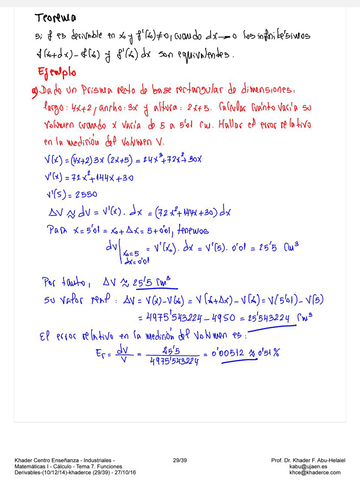 Teorema
si f es derivable en x₀ y f'(x₀)≠0, cuando dx→0 los infinitésimos
f(x₀+dx)-f(x₀) y f'(x₀) dx son equivalentes.
Ejemplo
Dado un Prisma recto de base rectangular de dimensiones:
largo: 4x+2, ancho: 3x y altura: 2x+5. Calcular cuánto varía su
volumen cuando x varía de 5 a 5'01 cm. Hallar el error relativo
en la medición del Volumen V.
V(x)=(4x+2)3x(2x+5)=24x³+72x²+30x
V'(x)=72x²+144x+30
V'(5)=2550
ΔV≈dV=V'(x)·dx=(72x²+144x+30)dx
Para x=5'01=x₀+Δx=5+0'01, tenemos
dV| x₀=5 dx=0'01 = V'(x₀)·dx = V'(5)·0'01 = 25'5 cm³
Por tanto, ΔV≈25'5 cm³
Su valor real: ΔV=V(x)-V(x₀)=V(x₀+Δx)-V(x₀)=V(5'01)-V(5)
=4975'543224-4950=25'543224 cm³
El error relativo en la medición del Volumen es:
Er=dV/V=25'5/4975'543224=0'00512≈0'51%
Khader Centro Enseñanza - Industriales -
Matemáticas I - Cálculo - Tema 7. Funciones
Derivables-(10/12/14)-khaderce (29/39) - 27/10/16
29/39
Prof. Dr. Khader F. Abu-Helaiel
kabu@ujaen.es
khce@khaderce.com